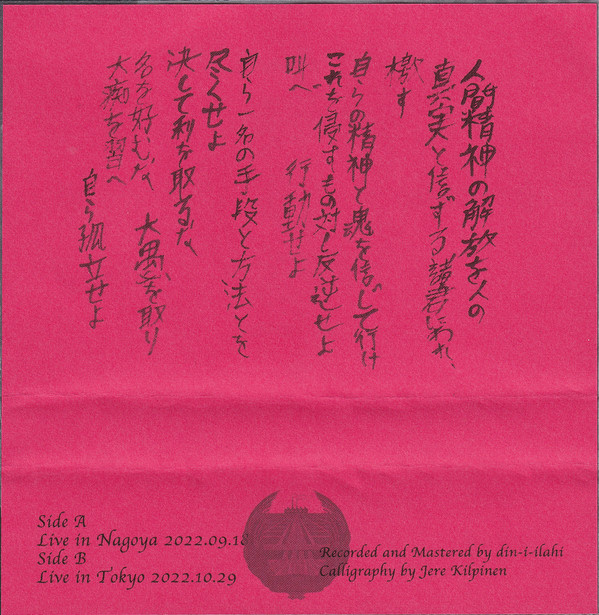 人間精神の解放を人の
真実と信ずる諸君にわれ、
檄す
自らの精神と魂を信じて行け
これを侵すもの対し反逆せよ
叫べ 行動せよ
自ら一名の手段と方法とを
尽くせよ
決して利を取るな
名を好むな 大愚を取り
大痴を習へ
自ら孤立せよ
Side A
Live in Nagoya 2022.09.18
Side B
Live in Tokyo 2022.10.29
Recorded and Mastered by din-i-ilahi
Calligraphy by Jere Kilpinen